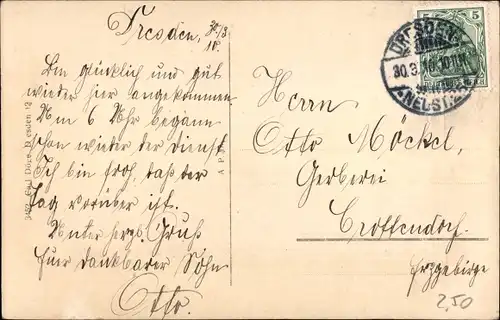 Dresden, 30/3
10.
Bin glücklich und gut
wieder hier angekommen
Um 6 Uhr begann
schon wieder der Dienst
Ich bin froh, daß der
Tag vorüber ist.
Unter herzl. Gruß
Euer dankbarer Sohn
Otto.
Herrn
Otto Möckel,
Gerberei
Crottendorf.
Erzgebirge
2,50
DRESDEN
30.3.10. 10-11
5